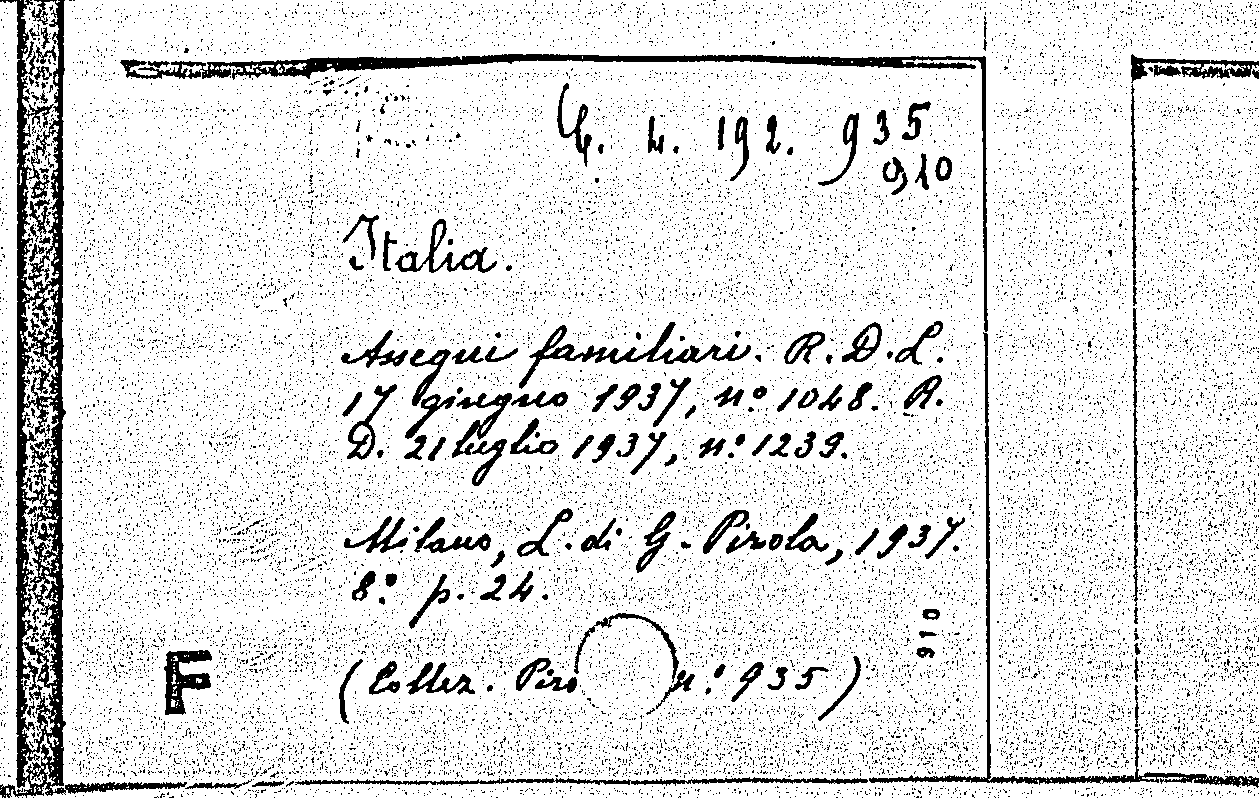 C. 4. 192. 935
910
Italia.
Assegni familiari. R.D.L.
17 giugno 1937, nº 1048. R.
D. 21 luglio 1937, nº 1239.
Milano, L. di G. Pirola, 1937.
8º p. 24.
910
F
(Collez. Piro nº 935)